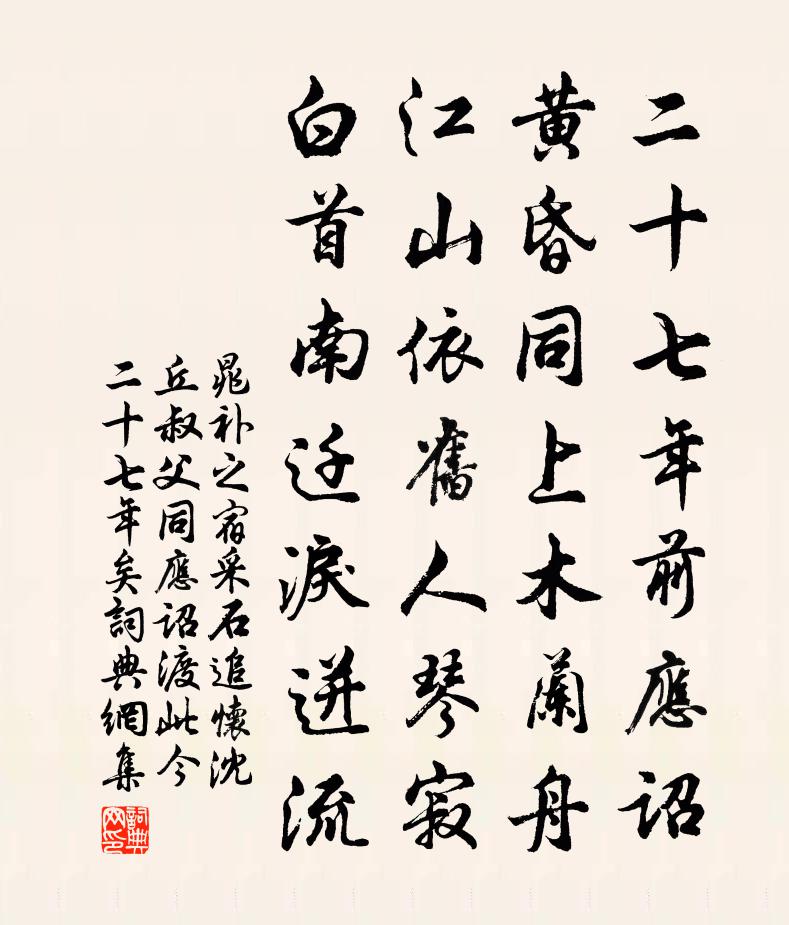 二十七年前應詔
黃昏同上木蘭舟
江山依舊人琴寂
白首南迁淚迸流
晁补之宿采石追懷沈
丘叔父同應詔渡此今
二十七年矣詞典網集
詞典網印